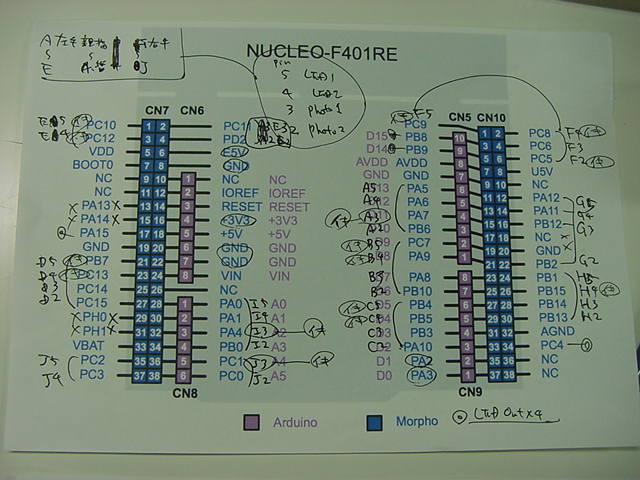 NUCLEO-F401RE
pin
5 LED1
4 LED2
3 photo1
photo2
CN7 CN6
PC10 1 2 PC11
PC12 3 4 PD2
VDD 5 6 E5V
BOOT0 7 8 GND
NC 9 10 1 NC NC
NC 11 12 2 IOREF IOREF
PA13 13 14 3 RESET RESET
PA14 15 16 4 +3V3 +3V3
PA15 17 18 5 +5V +5V
GND 19 20 6 GND GND
D5 PB7 21 22 7 GND GND
D4 PC13 23 24 8 VIN VIN
D3 PC14 25 26 NC
D2 PC15 27 28 1 PA0 I5 A0
PH0 29 30 2 PA1 I4 A1
PH1 31 32 3 PA4 I3 A2
VBAT 33 34 4 PB0 I2 A3
J5 PC2 35 36 5 PC1 J3 A4
J4 PC3 37 38 6 PC0 J2 A5
CN8
F5
CN5 CN10
PC9 1 2 PC8 F4
D15 PB8 10 3 4 PC6 F3
D14 PB9 9 5 6 PC5 F2
AVDD AVDD 8 7 8 U5V
GND GND 7 9 10 NC
A5 D13 PA5 6 11 12 PA12 G5
A4 PA6 5 13 14 PA11 G4
A3 PA7 4 15 16 PB12 G3
A2 PB6 3 17 18 NC
B5 PC7 2 19 20 GND
B4 PA9 1 21 22 PB2 G2
B3 PA8 8 23 24 PB1 H5
B2 PB10 7 25 26 PB15 H4
C5 PB4 6 27 28 PB14 H3
C4 PB5 5 29 30 PB13 H2
C3 PB3 4 31 32 AGND
C2 PA10 3 33 34 PC4
D1 PA2 2 35 36 NC
D0 PA3 1 37 38 NC
CN9
Arduino Morpho LED Out×4